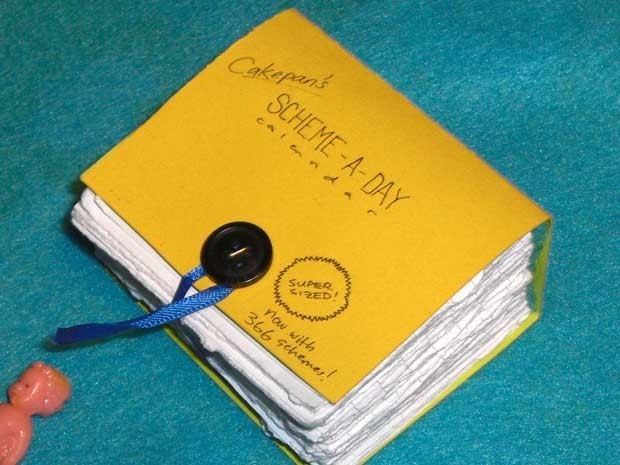 Cakepan's
SCHEME-A-DAY
calendar
SUPER
SIZED!
now with
366 schemes!